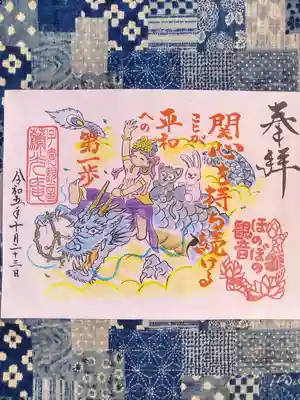 奉拝
関心を持ち続ける
ことが
平和
への
第一歩
ほのぼの
観音
令和五年十月二十三日